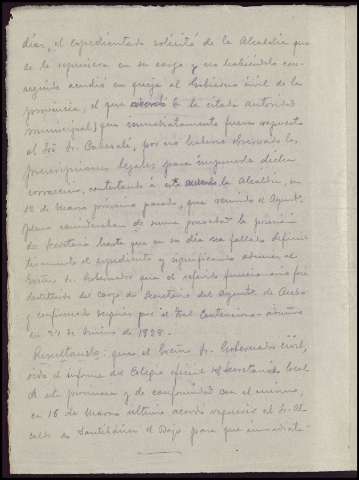 días, el expedientado solicitó de la Alcaldía que
se le repusiera en su cargo y no habiéndolo con-
seguido acudió en queja al Gobierno civil de la
provincia, el que acordó la citada autoridad
municipal, que inmediatamente fuera repuesto
el Sr. por no haberse observado las
prescripciones legales para imponerle dicha
corrección, contestando a este acuerdo la Alcaldía, en
12 de Marzo próximo pasado, que reunido el Ayunt.
pleno de nuevo la posesión
de Secretario hasta que en su día sea fallado definiti-
vamente el expediente y significando además al
Excmo. Sr. Gobernador que el referido funcionario fué
destituido del cargo de Secretario del Ayunt. de
y confirmado después por el Tral Contencioso-admtvo
en 27 de Junio de 1928.-
Resultando: que el Excmo. Sr. Gobernador civil,
oido el informe del Colegio oficial del Secretariado local
de esta provincia y de conformidad con el mismo,
en 16 de Marzo último acordó requerir al Sr. Al-
calde de Santibáñez el Bajo para que inmediata-